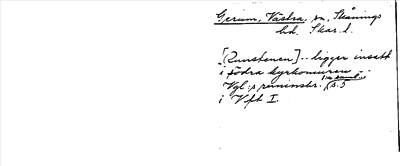 Gerum, Västra, sn, Skånings
hd. Skar. l.
[Runstenen] -- ligger insatt
i södra kyrkomuren --
Vgl:s runinskr.
i Vft I.